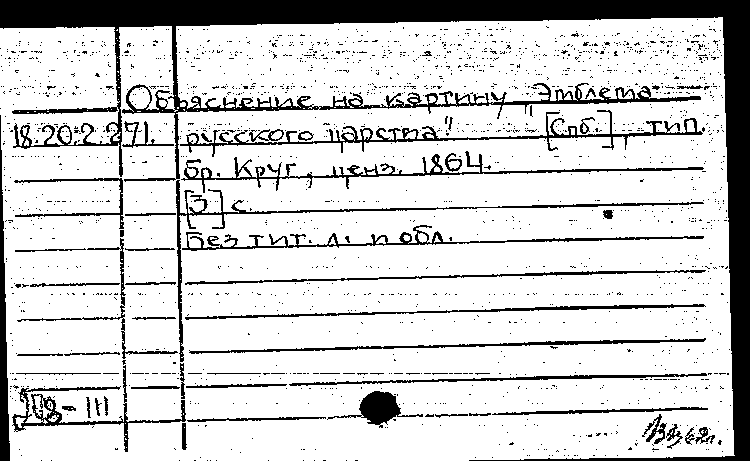 Объяснение на картину „Эмблема
18.20.2.271. русского царства“ [Спб.], тип.
бр. Круг, ценз. 1864.
[3] с.
Без тит. л. и обл.
- III